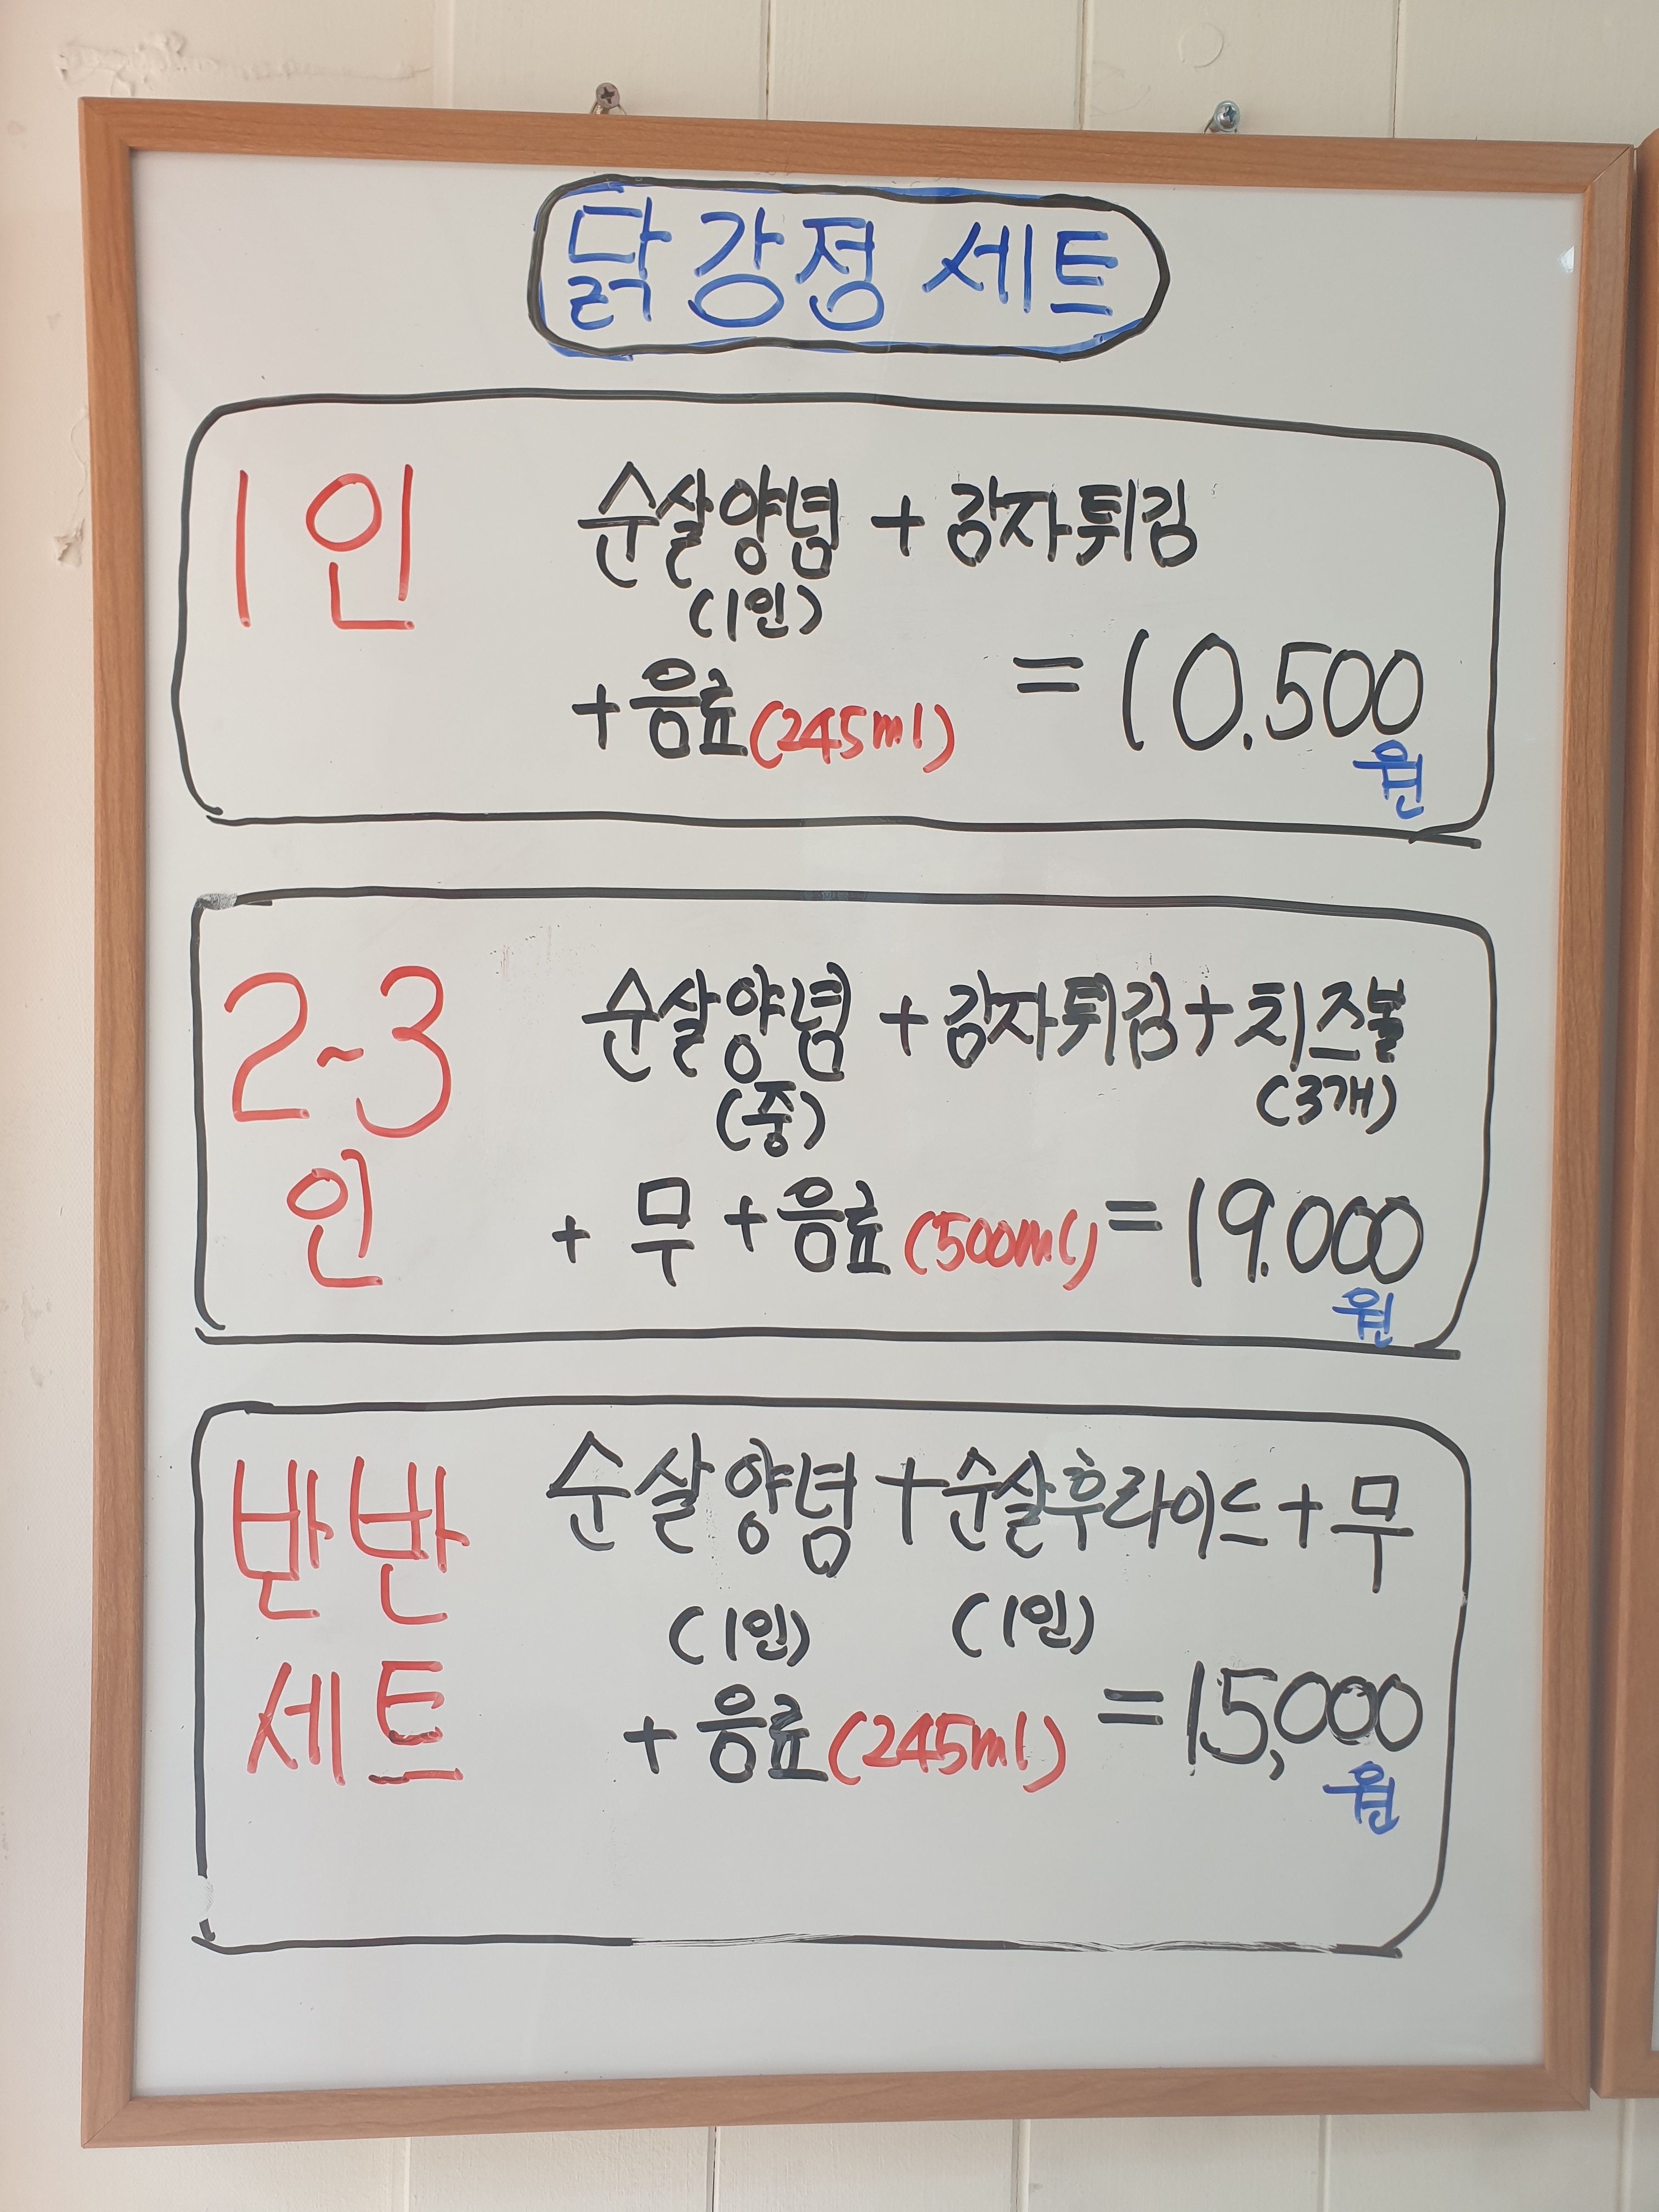 닭강정 세트
1인 순살양념 + 감자튀김
(1인)
+ 음료(245ml) = 10.500
원
2~3 순살양념 + 감자튀김 + 치즈볼
(중) (3개)
인 + 무 + 음료(500ml) = 19.000
원
반반 순살양념 + 순살후라이드 + 무
(1인) (1인)
세트 + 음료(245ml) = 15,000
원